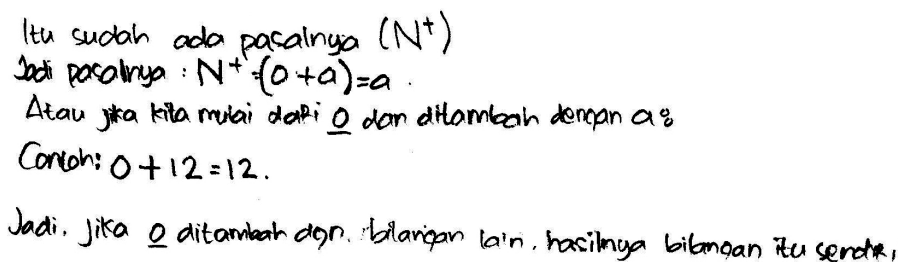 Itu sudah ada pasalnya (N⁺)
Jadi pasalnya : N⁺ (0+a)=a.
Atau jika kita mulai dari 0 dan ditambah dengan a:
Contoh: 0+12=12.
Jadi, jika 0 ditambah dgn. bilangan lain, hasilnya bilangan itu